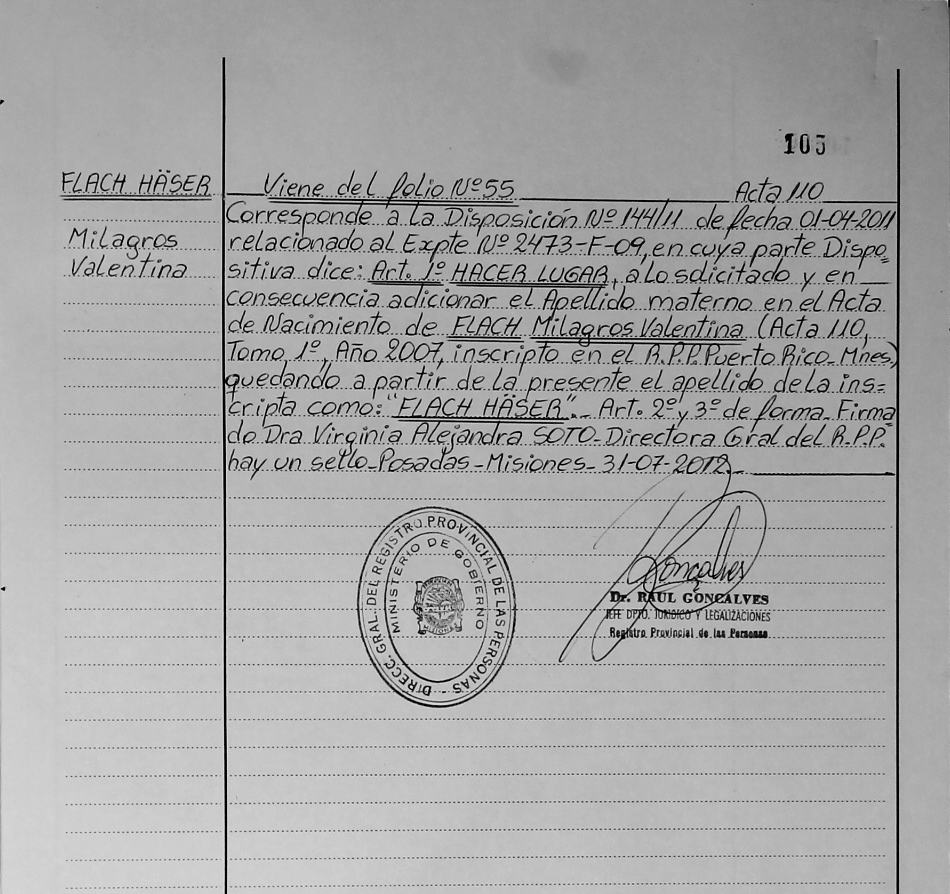 105
FLACH HÄSER
Milagros
Valentina
Viene del folio Nº 55 Acta 110
Corresponde a la Disposición Nº 144/11 de fecha 01-04-2011
relacionado al Expte Nº 2473-F-09, en cuya parte Dispo=
sitiva dice: Art. 1º HACER LUGAR, a lo solicitado y en
consecuencia adicionar el Apellido materno en el Acta
de Nacimiento de FLACH Milagros Valentina (Acta 110,
Tomo 1º, Año 2007, inscripto en el R.P.P. Puerto Rico-Mnes)
quedando a partir de la presente el apellido de la ins=
cripta como: "FLACH HÄSER".- Art. 2º y 3º de forma. Firma=
do Dra Virginia Alejandra SOTO-Directora Gral del R.P.P.
hay un sello-Posadas-Misiones-31-07-2012
DIRECC. GRAL. DEL REGISTRO PROVINCIAL DE LAS PERSONAS -
MINISTERIO DE GOBIERNO
MISIONES
Gonçalves
Dr. RAUL GONÇALVES
JEFE DPTO. JURIDICO Y LEGALIZACIONES
Registro Provincial de las Personas